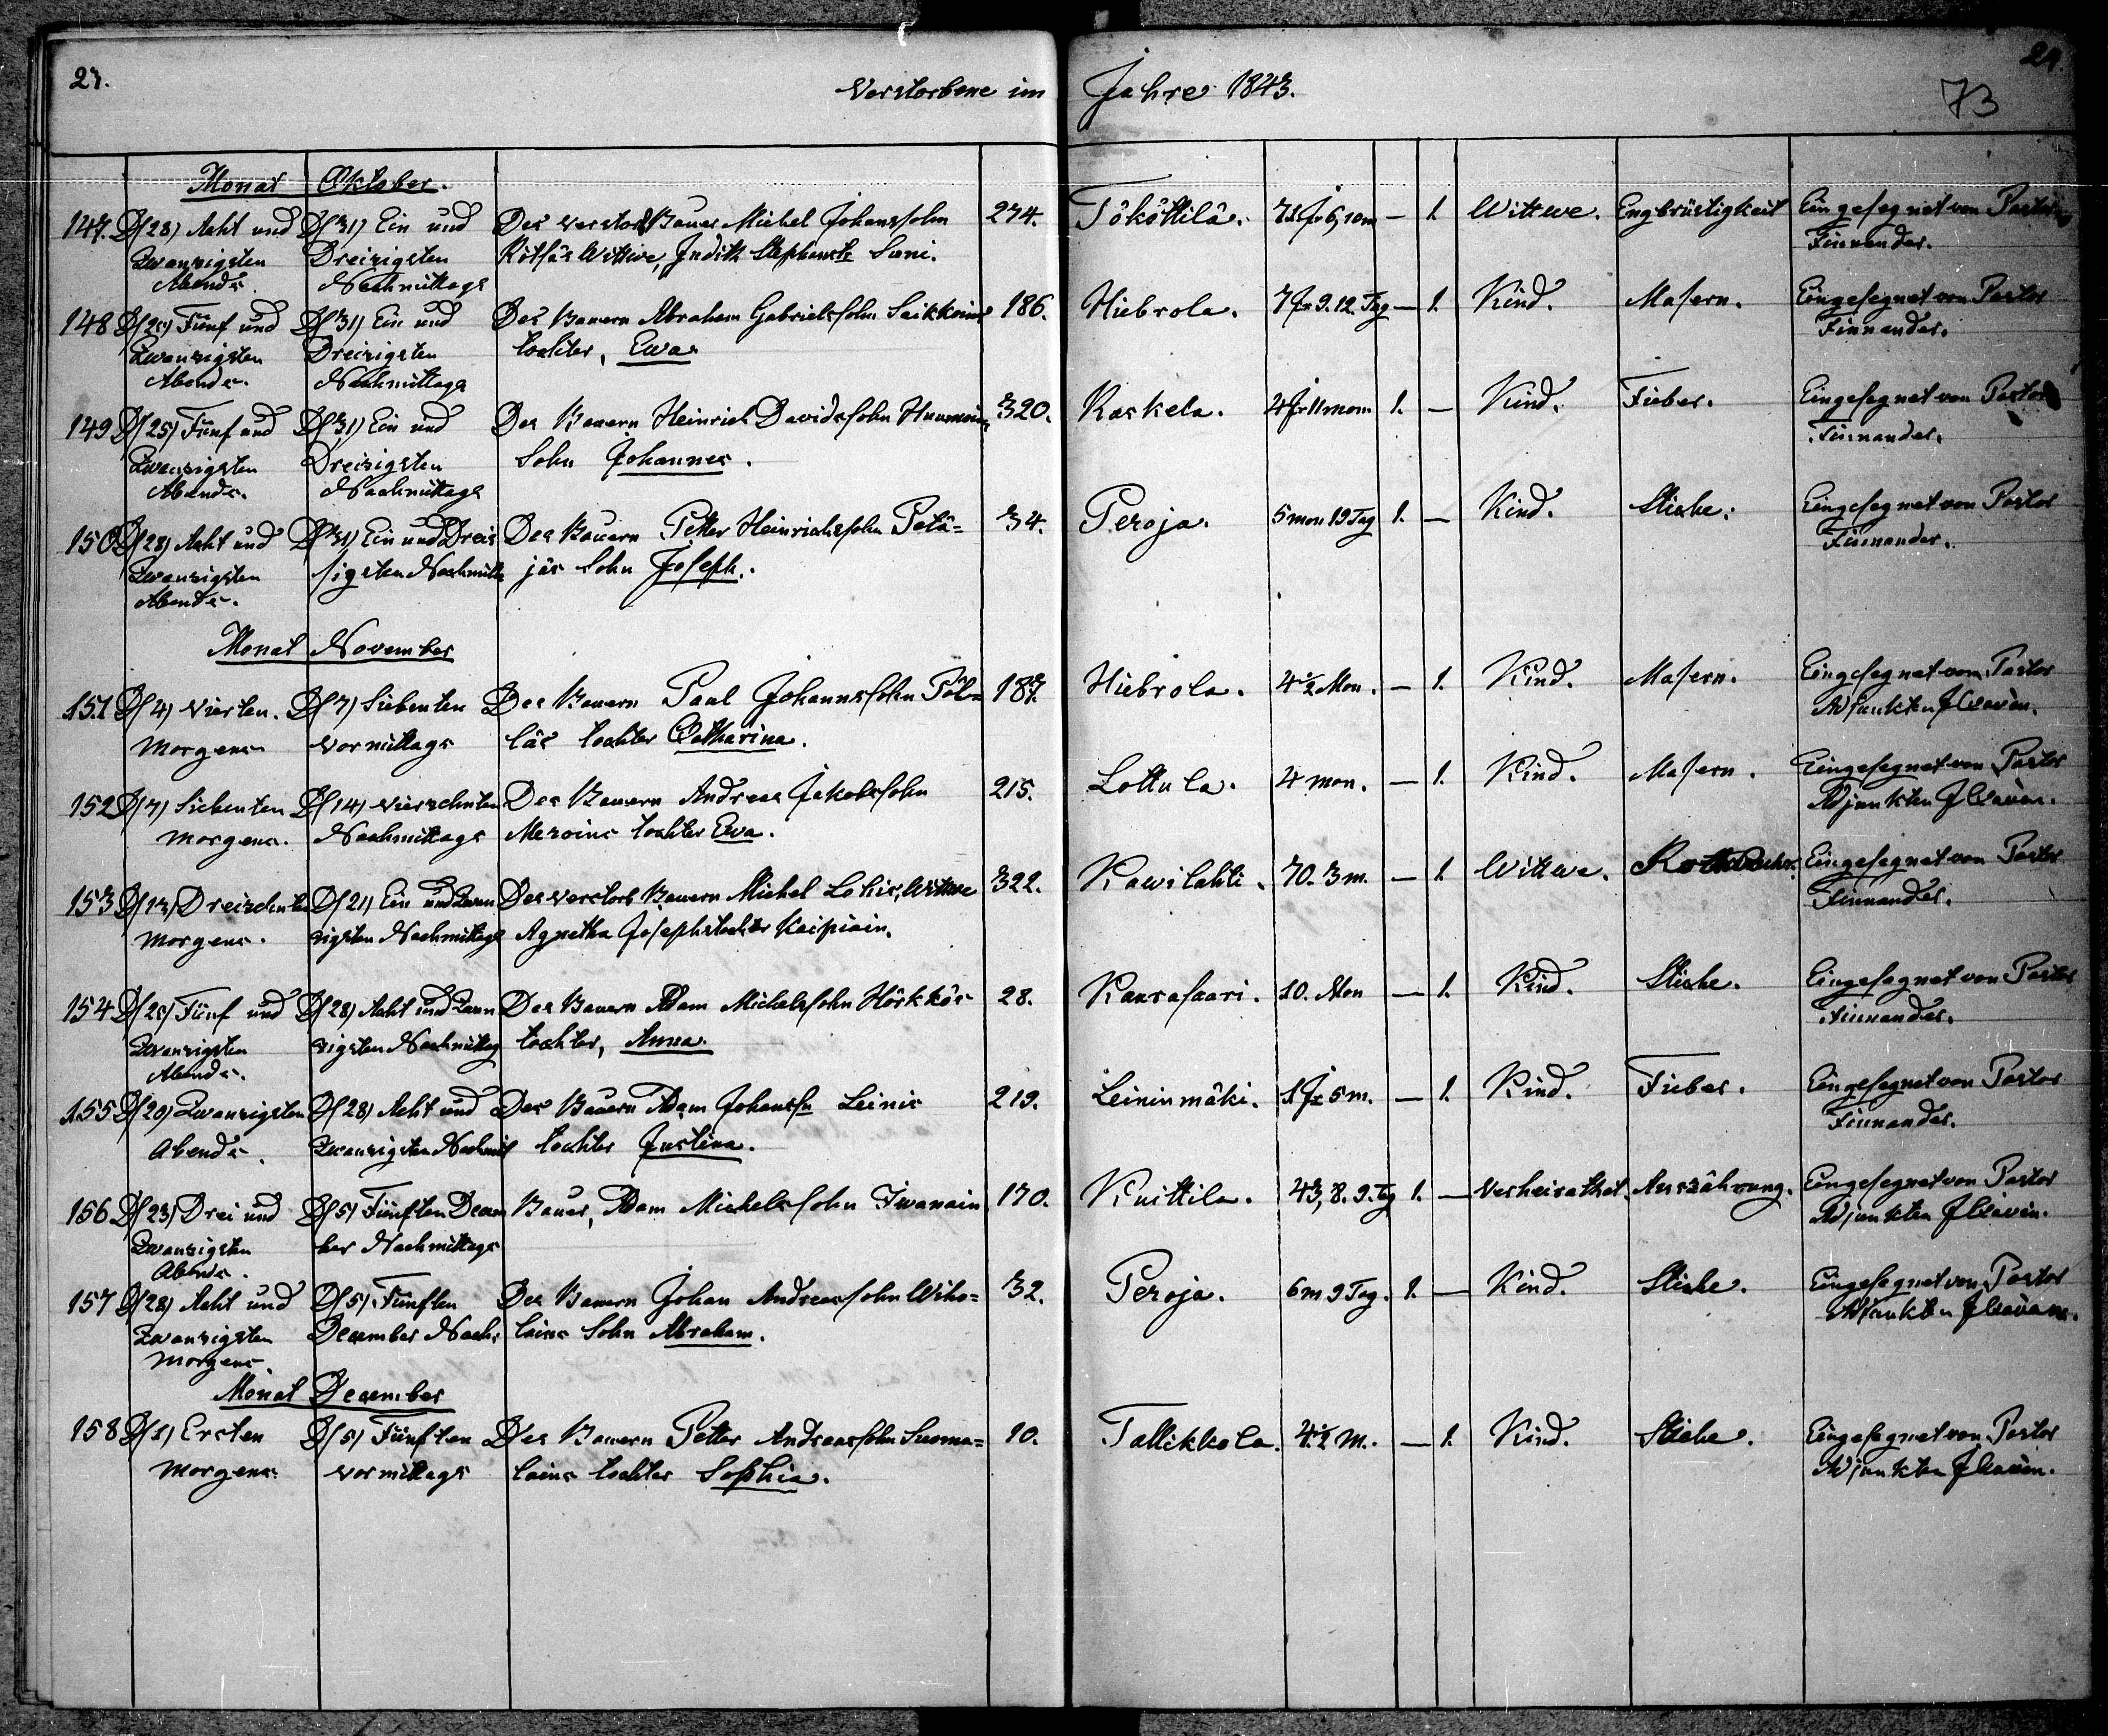 27.
Verstorbene im Jahre 1843.
24.
73
Monat Oktober.
147. D/28) Acht und D/31) Ein und Des verstorb Bauer Michel Johanssohn 274. Tököttilä. 71 Jr 6, 10m — 1. Wittwe. Engbrüstigkeit Eingesegnet von Pastor
Zwanzigsten Dreizigsten Wittwe, Judith Suni. Finnander.
Abends. Nachmittags
148 D/25) Fünf und D/31) Ein und Des Bauern Abraham Gabrielssohn 186. Hiebrola. 7 Jr 9. 12. Tag — 1. Kind. Masern. Eingesegnet von Pastor
Zwanzigsten Dreizigsten tochter, Ewa Finnander.
Abends. Nachmittags
149 D/25) Fünf und D/31) Ein und Des Bauern Heinrich Davidssohn 320. Kaskela. 4 Jr 11 mon 1. — Kind. Fieber. Eingesegnet von Pastor
Zwanzigsten Dreizigsten Sohn Johannes. Finnander.
Abends. Nachmittags
150 D/28) Acht und D/31) Ein und Dreis Des Bauern Petter Heinrichssohn Petä= 34. Peroja. 5 mon 19 Tag 1. — Kind. Stiche. Eingesegnet von Pastor
Zwanzigsten sigsten Nachmitt jäs Sohn Joseph. Finnander.
Abends.
Monat November
151 D/4) Vierten. D/7) Siebenten Des Bauern Paul Johannssohn Pöl= 187. Hiebrola. 4½ Mon. — 1. Kind. Masern. Eingesegnet von Pastor
Morgens Vormittags läs tochter Catharina. Adjunkten
152 D/7) Siebenten D/14) Vierzehnten Des Bauern Andreas Jakobssohn 215. Lottula. 4 mon. — 1. Kind. Masern. Eingesegnet von Pastor
Morgens. Nachmittags Meroins tochter Ewa. Adjunkten
153 D/13) Dreizehnten D/21) Ein und Zwan Des verstorb Bauern Michel Lohis, Wittwe 322. Kawilahti. 70. 3 m. — 1. Wittwe. Eingesegnet von Pastor
Morgens. zigsten Nachmittags Agnetha Josephstochter Kaipiain. Finnander.
154 D/25) Fünf und D/28) Acht und Zwan Des Bauern Adam Michelssohn Hörkkös 28. Kansasaari. 10. Mon — 1. Kind. Stiche. Eingesegnet von Pastor
Zwanzigsten zigsten Nachmittag tochter, Anna. Finnander.
Abends.
155 D/20) Zwanzigsten D/28) Acht und Des Bauern Adam Johanssn Leinis 219. Leininmäki. 1 Jr 5 m. — 1. Kind. Fieber. Eingesegnet von Pastor
Abends. Zwanzigsten Nachmit tochter Justina. Finnander.
156 D/23) Drei und D/5) Fünften Decem Bauer, Adam Michelssohn Iwanain 170. Knittila. 43, 8. 9. Tag 1. — Verheirathet. Auszährung. Eingesegnet von Pastor
Zwanzigsten ber Nachmittags Adjunkten
Abends.
157 D/28) Acht und D/5) Fünften Des Bauern Johan Andreassohn Wiho= 32. Peroja. 6 m 9 Tag. 1. — Kind. Stiche. Eingesegnet von Pastor
Zwanzigsten December Nachs lains Sohn Abraham. Adjunkten
Morgens.
Monat December
158 D/1) Ersten D/5) Fünften Des Bauern Petter Andreassohn Suoma= 10. Tallikkola. 4½ M. — 1. Kind. Stiche. Eingesegnet von Pastor
Morgens Vormittags lains tochter Sophia. Adjunkten